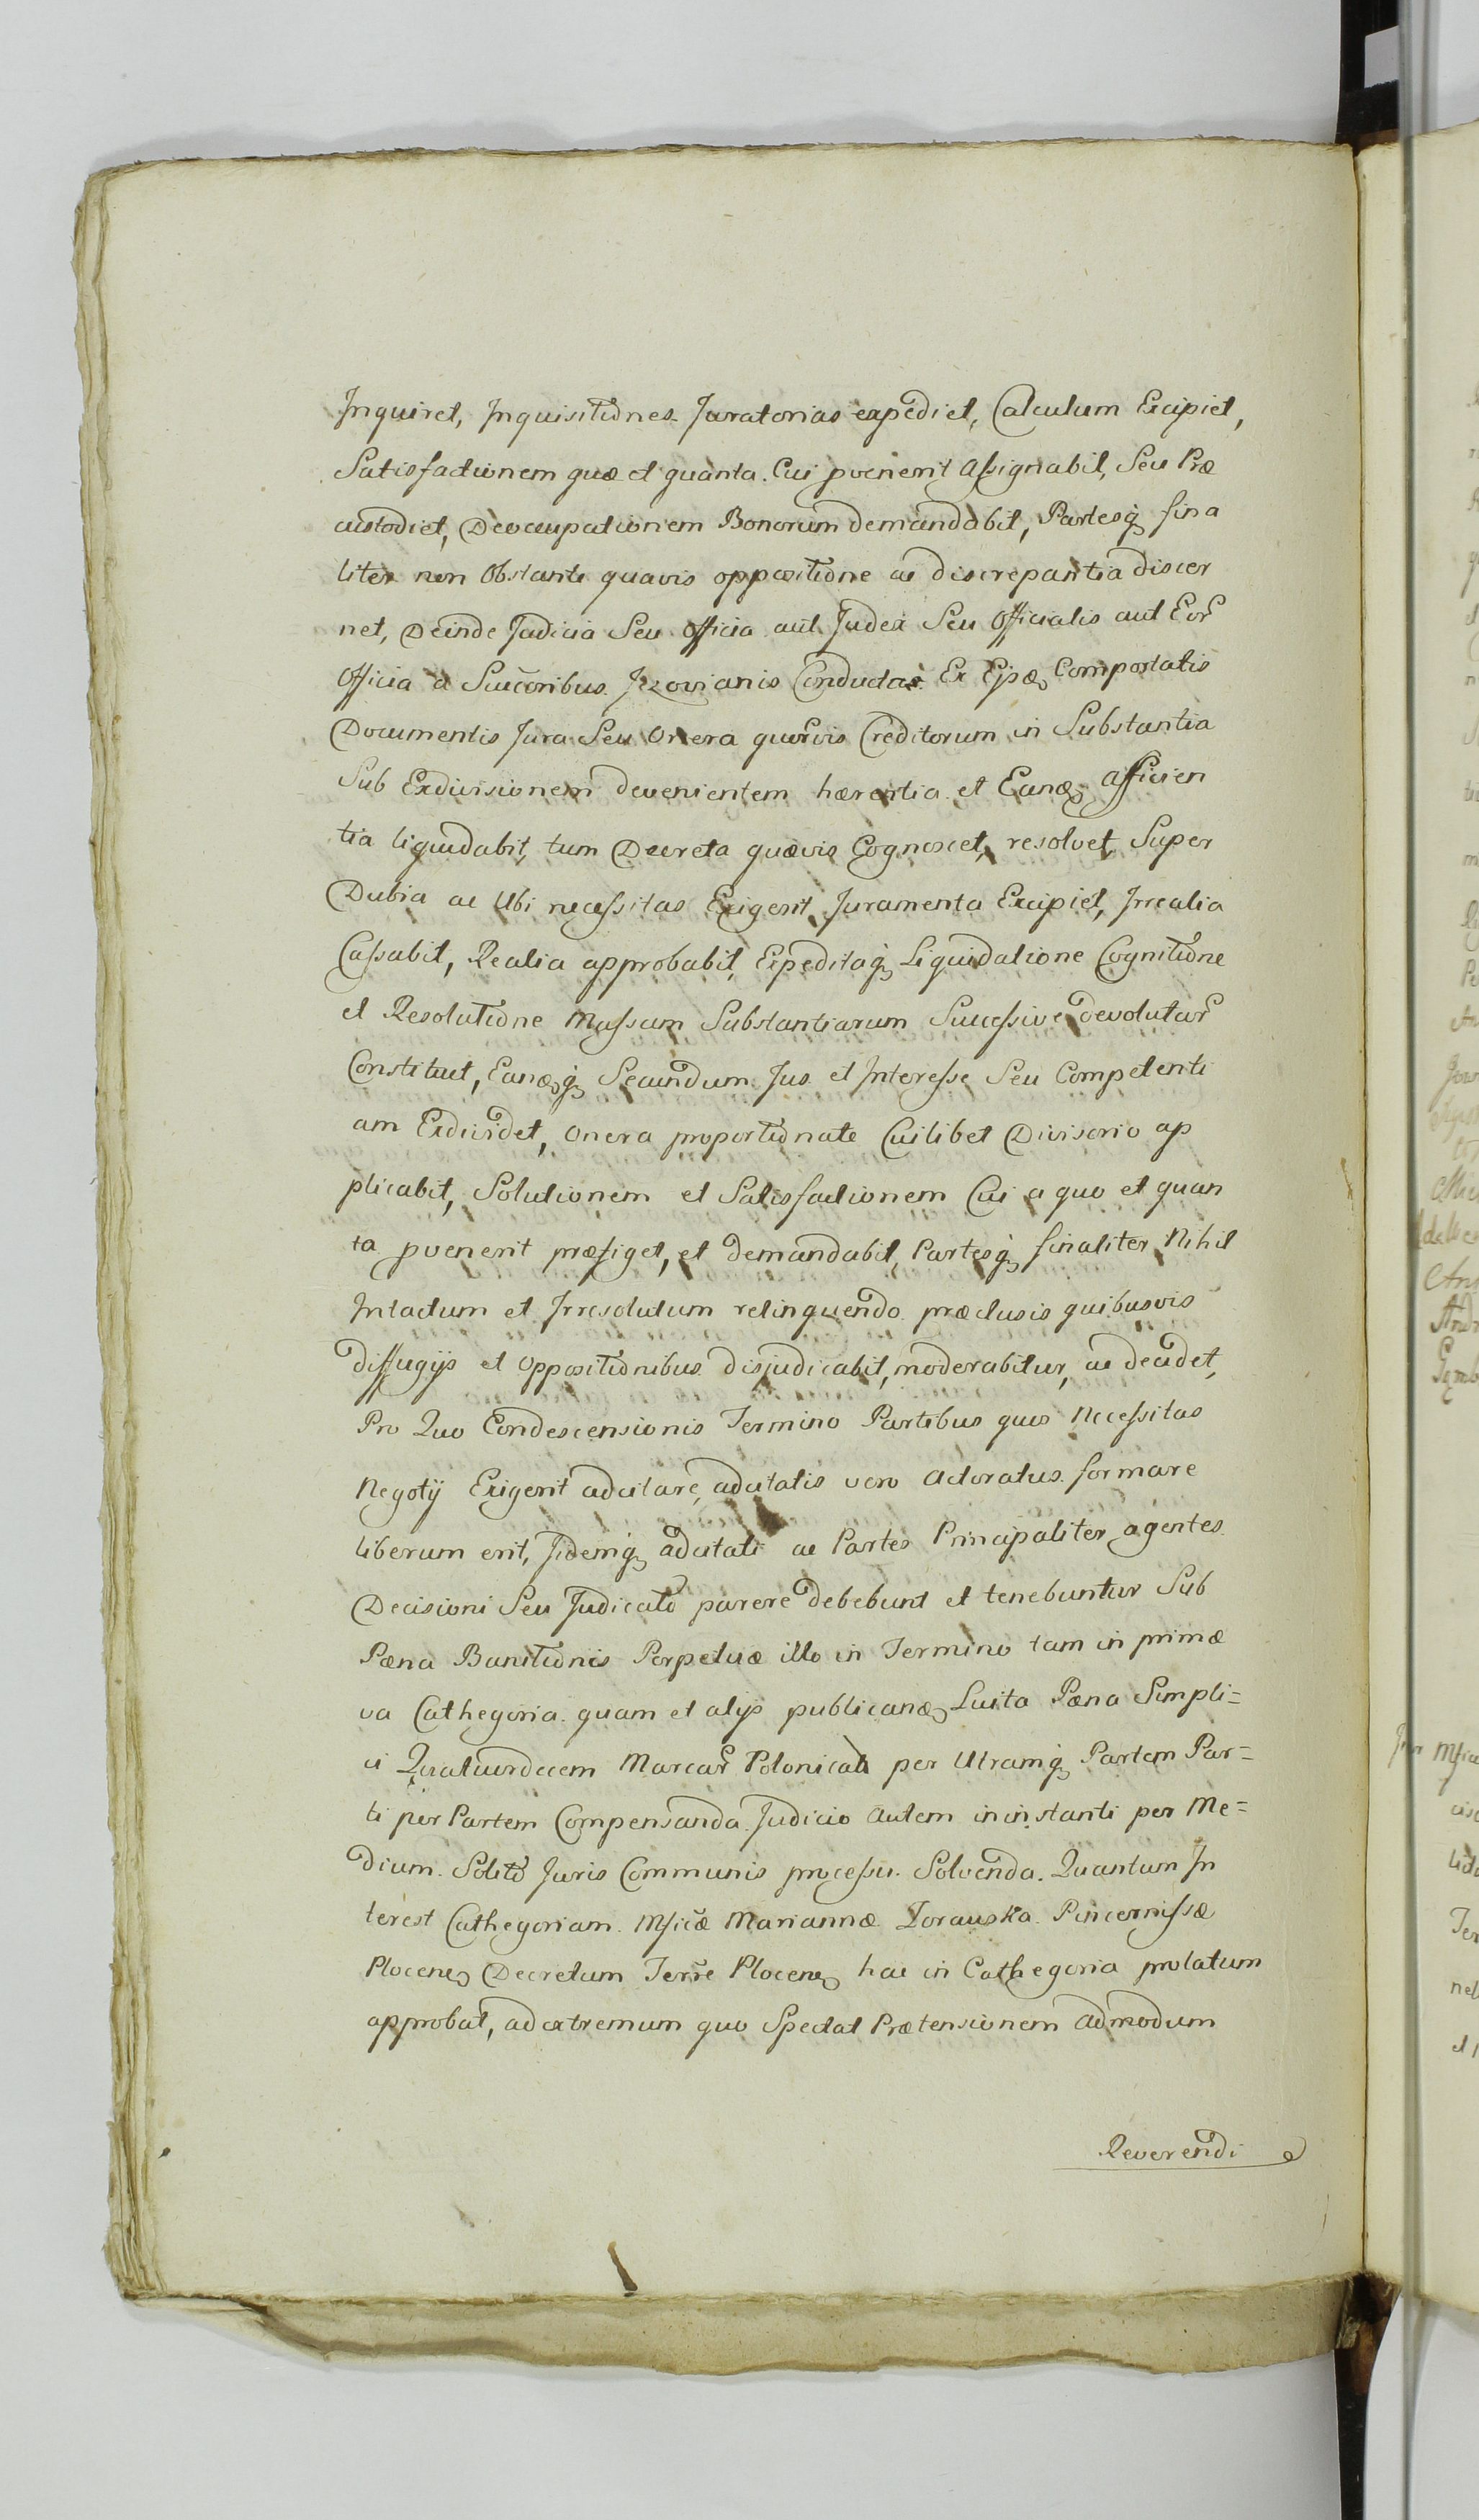 Inquiret, Inquisitiones Juratorias expediet, Calculum Excipiet,
Satisfactionem quæ et quanta Cui pvenerit Assignabit, Seu Præ
custodiet, Deoccupationem Bonorum demandabit, Partesq3 fina
liter non Obstante quavis oppositione ac discrepantia discer
net, Deinde Judicia Seu Officia aut Judex Seu Officialis aut Eor
Officia à Succoribus Conductar Ex Comportatis
Documentis Jura Seu Onera quorvis Creditorum in Substantia
Sub Exdivisionem devenientem hærentia et Eand Afficien
tia liquidabit, tum Decreta quævis Cognoscet, resolvet, Super
Dubia ac Ubi necessitas Exigerit Juramenta Excipiet, Irrealia
Cassabit, Realia approbabit, Expeditaq3 Liquidatione Cognitione
et Resolutione Massam Substantiarum Successive devolutar
Constituet, Eandq3 Secundum Jus et Interesse Seu Competenti
am Exdividet, Onera proportionate Cuilibet Divisorio ap
plicabit, Solutionem et Satisfactionem Cui a quo et quan
ta pvenerit præfiget, et demandabit, Partesq3 finaliter Nihil
Intactum et Irresolutum relinquendo præclusis quibusvis
diffugijs et oppositionibus disjudicabit, moderabitur, ac decidet,
Pro Quo Condescensionis Termino Partibus quas Necessitas
Negotij Exigerit adcitare, adcitatis vero Actoratus formare
liberum erit, Iidemq3 adcitati ac Partes Principaliter agentes
Decisioni Seu Judicato parere debebunt et tenebuntur Sub
Pæna Banitionis Perpetuæ illo in Termino tam in primæ
va Cathegoria quam et alijs publicand Luita Pæna Simpli=
ci Quatuordecem Marcar Polonical per Utramq3 Partem Par=
ti per Partem Compensanda Judicio Autem in instanti per Me=
dium Solito Juris Communis processu Solvenda. Quantum In
terest Cathegoriam Mficæ Mariannæ Pincernissæ
Plocen Decretum Terre Plocen hac in Cathegoria prolatum
approbat, ad extremum quo Spectat Prætensionem Admodum
Reverendi